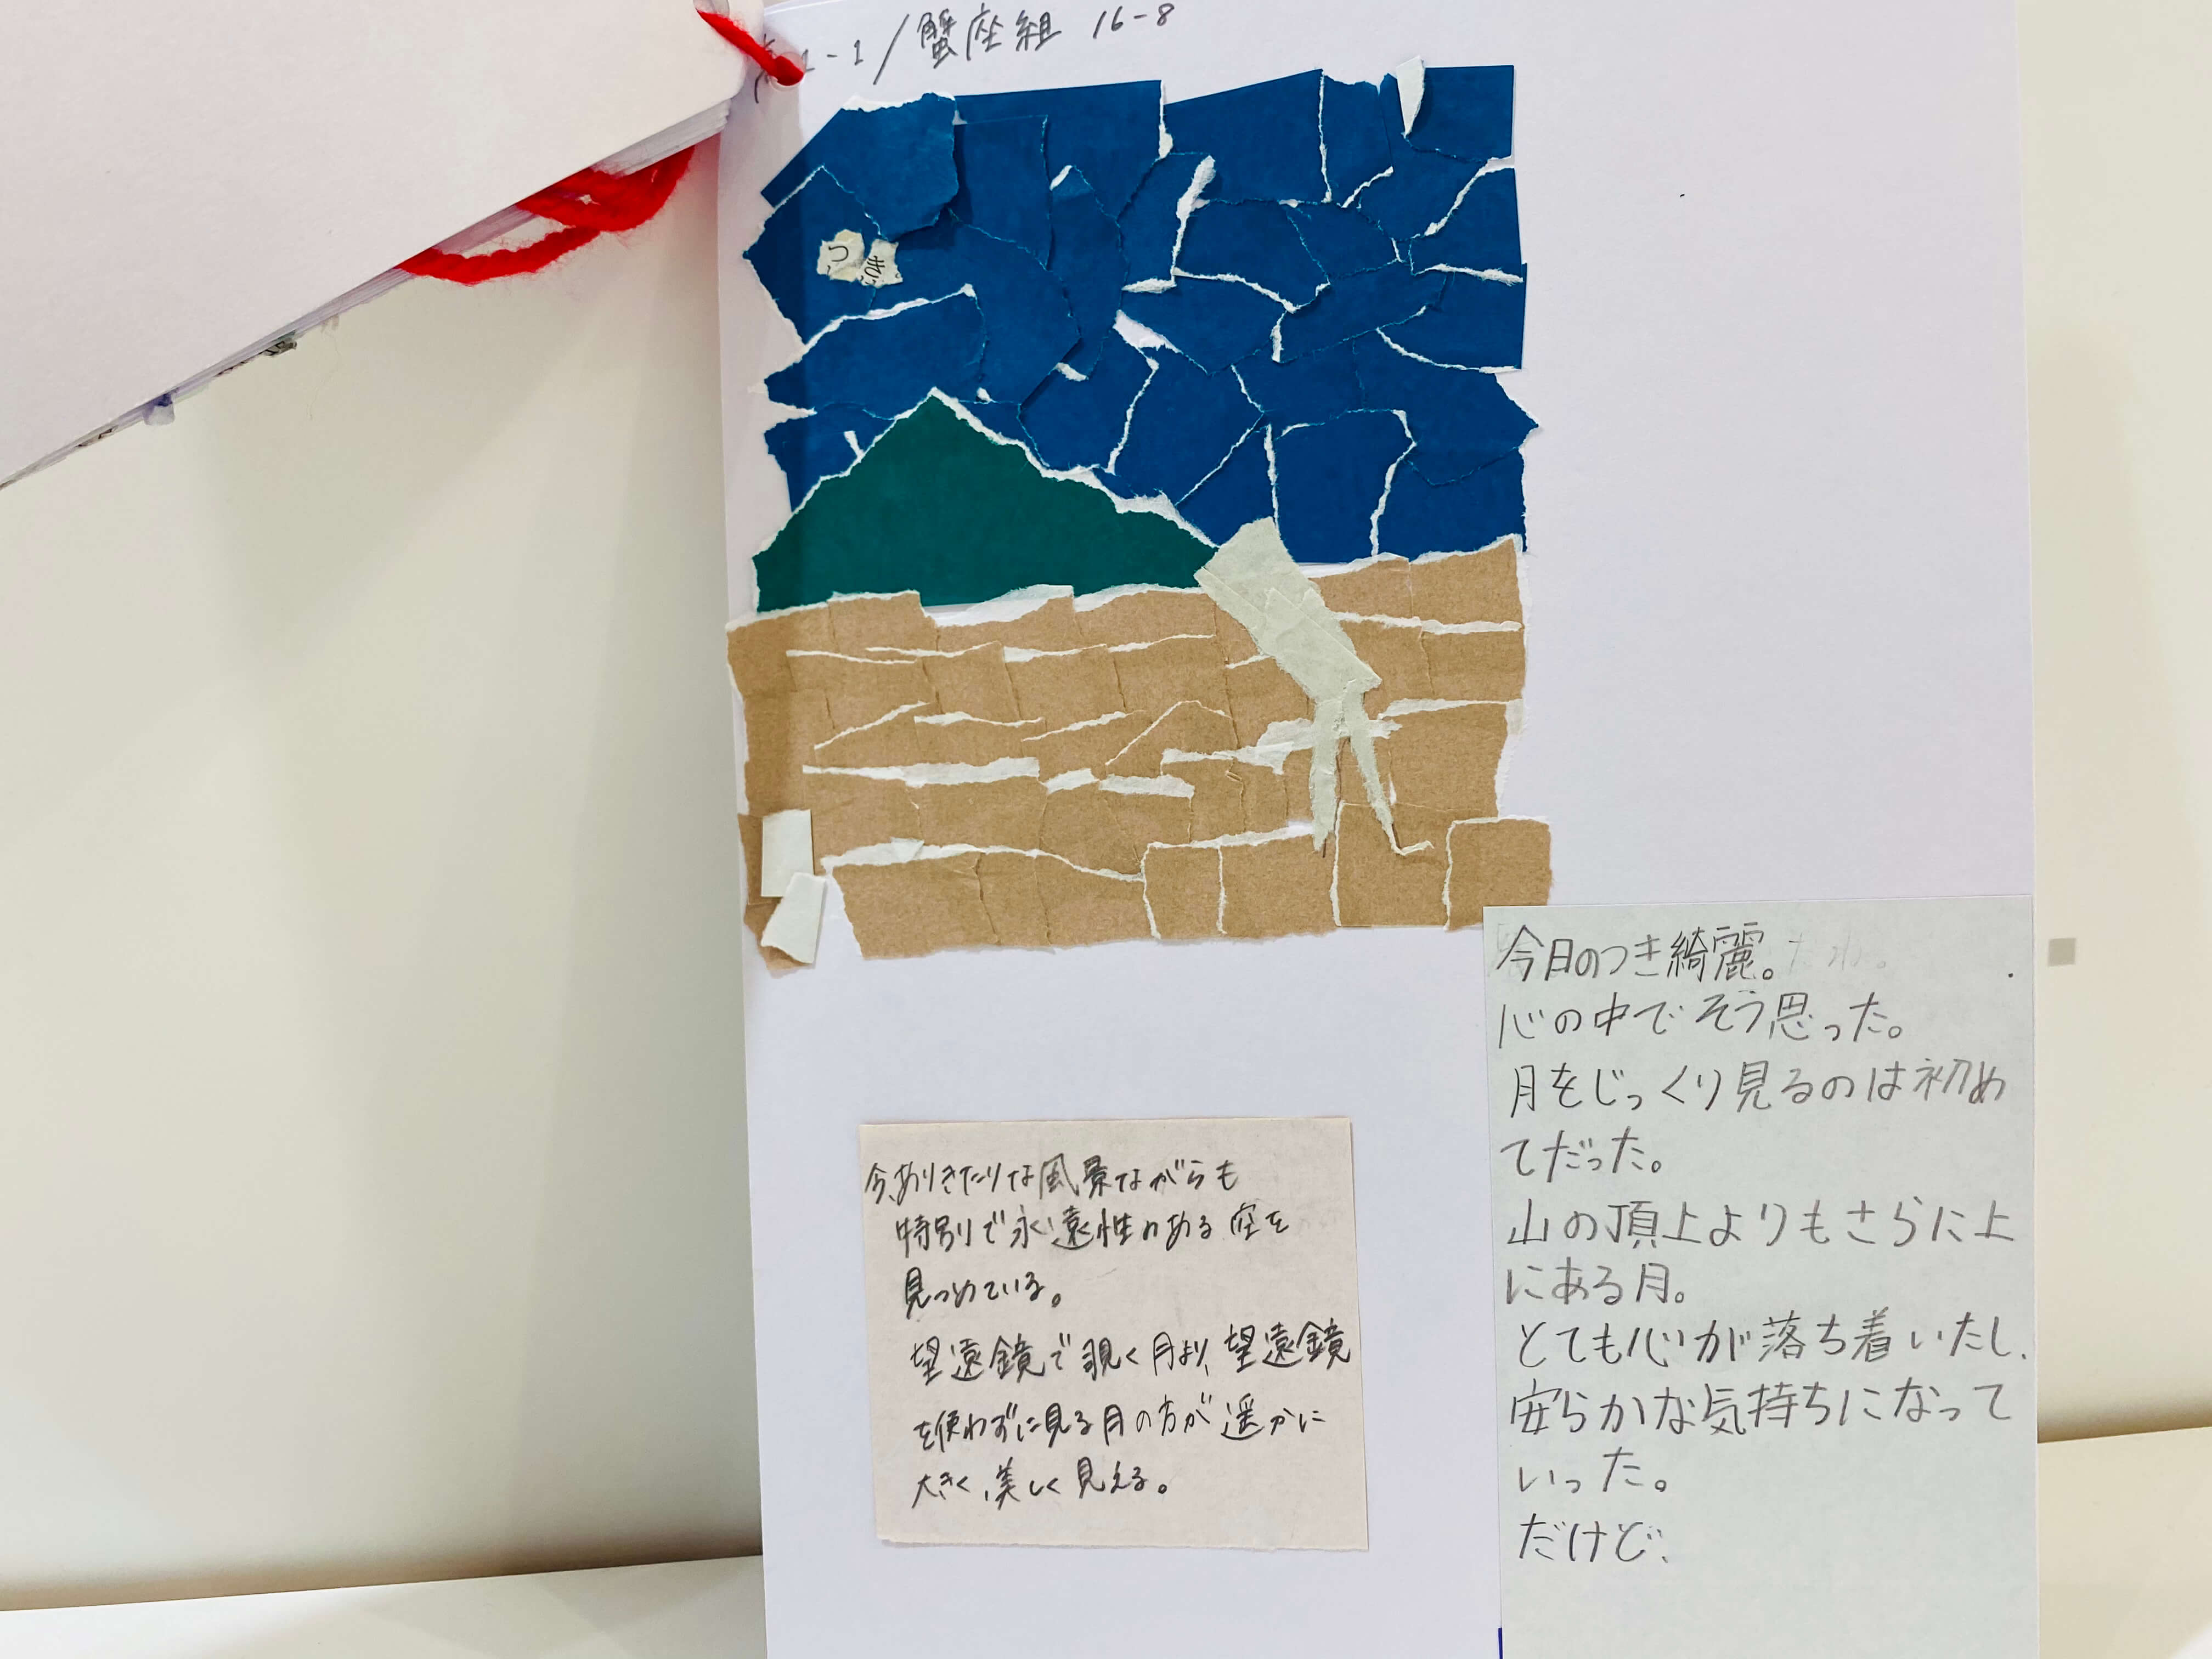 1-1/蟹座組 16-8
つき
今、ありきたりな風景ながらも
特別で永遠性のある空を
見つめている。
望遠鏡で覗く月より、望遠鏡
を使わずに見る月の方が遥かに
大きく、美しく見える。
今日のつき綺麗。
心の中でそう思った。
月をじっくり見るのは初め
てだった。
山の頂上よりもさらに上
にある月。
とても心が落ち着いたし、
安らかな気持ちになって
いった。
だけど、